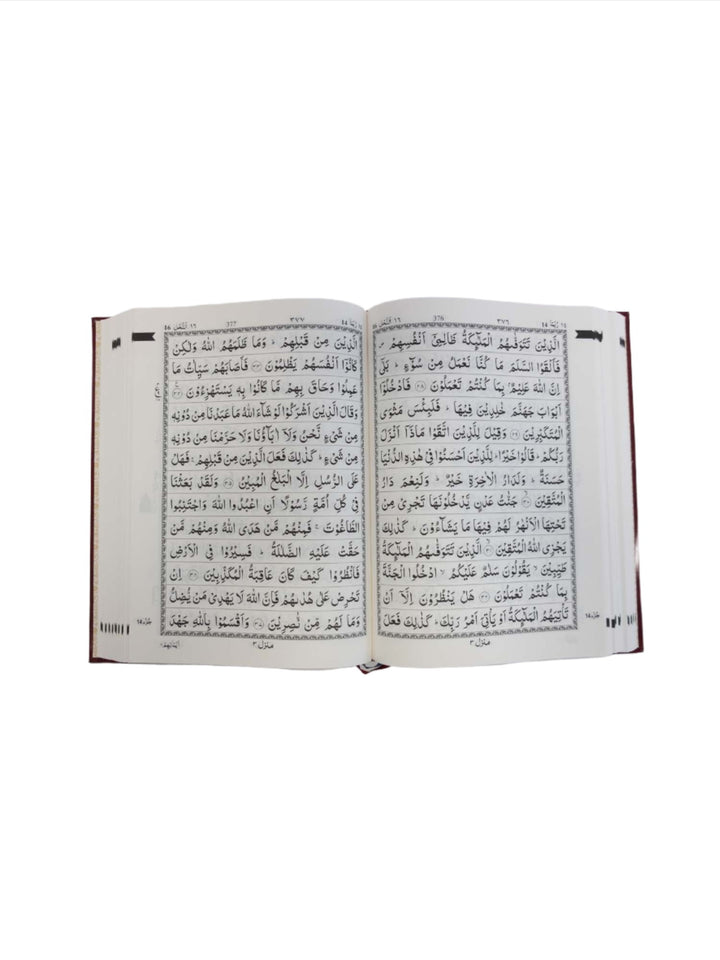 ربما ١٤ 14
٣٧٦
376
النحل ١٦ 16
الَّذِيْنَ تَتَوَفّٰىهُمُ الْمَلٰٓئِكَةُ ظَالِمِيْٓ اَنْفُسِهِمْ ۪
فَاَلْقَوُا السَّلَمَ مَا كُنَّا نَعْمَلُ مِنْ سُوْٓءٍ ؕ بَلٰٓى
اِنَّ اللّٰهَ عَلِيْمٌۢ بِمَا كُنْتُمْ تَعْمَلُوْنَ ﴿۲۸﴾ فَادْخُلُوْٓا
اَبْوَابَ جَهَنَّمَ خٰلِدِيْنَ فِيْهَا ؕ فَلَبِئْسَ مَثْوَى
الْمُتَكَبِّرِيْنَ ﴿۲۹﴾ وَقِيْلَ لِلَّذِيْنَ اتَّقَوْا مَاذَآ اَنْزَلَ
رَبُّكُمْ ؕ قَالُوْا خَيْرًا ؕ لِلَّذِيْنَ اَحْسَنُوْا فِيْ هٰذِهِ الدُّنْيَا
حَسَنَةٌ ؕ وَلَدَارُ الْاٰخِرَةِ خَيْرٌ ؕ وَلَنِعْمَ دَارُ
الْمُتَّقِيْنَ ﴿۳۰﴾ جَنّٰتُ عَدْنٍ يَّدْخُلُوْنَهَا تَجْرِيْ مِنْ
تَحْتِهَا الْاَنْهٰرُ لَهُمْ فِيْهَا مَا يَشَآءُوْنَ ؕ كَذٰلِكَ
يَجْزِي اللّٰهُ الْمُتَّقِيْنَ ﴿۳۱﴾ الَّذِيْنَ تَتَوَفّٰىهُمُ الْمَلٰٓئِكَةُ
طَيِّبِيْنَ ۙ يَقُوْلُوْنَ سَلٰمٌ عَلَيْكُمُ ۙ ادْخُلُوا الْجَنَّةَ
بِمَا كُنْتُمْ تَعْمَلُوْنَ ﴿۳۲﴾ هَلْ يَنْظُرُوْنَ اِلَّآ اَنْ
تَاْتِيَهُمُ الْمَلٰٓئِكَةُ اَوْ يَاْتِيَ اَمْرُ رَبِّكَ ؕ كَذٰلِكَ فَعَلَ
منزل ۳
ربما ١٤ 14
٣٧٧
377
النحل ١٦ 16
الَّذِيْنَ مِنْ قَبْلِهِمْ ؕ وَمَا ظَلَمَهُمُ اللّٰهُ وَلٰكِنْ
كَانُوْٓا اَنْفُسَهُمْ يَظْلِمُوْنَ ﴿۳۳﴾ فَاَصَابَهُمْ سَيِّاٰتُ مَا
عَمِلُوْا وَحَاقَ بِهِمْ مَّا كَانُوْا بِهٖ يَسْتَهْزِءُوْنَ ﴿۳۴﴾
وَقَالَ الَّذِيْنَ اَشْرَكُوْا لَوْ شَآءَ اللّٰهُ مَا عَبَدْنَا مِنْ دُوْنِهٖ
مِنْ شَيْءٍ نَّحْنُ وَلَآ اٰبَآؤُنَا وَلَا حَرَّمْنَا مِنْ دُوْنِهٖ
مِنْ شَيْءٍ ؕ كَذٰلِكَ فَعَلَ الَّذِيْنَ مِنْ قَبْلِهِمْ ۚ فَهَلْ
عَلَى الرُّسُلِ اِلَّا الْبَلٰغُ الْمُبِيْنُ ﴿۳۵﴾ وَلَقَدْ بَعَثْنَا
فِيْ كُلِّ اُمَّةٍ رَّسُوْلًا اَنِ اعْبُدُوا اللّٰهَ وَاجْتَنِبُوا
الطَّاغُوْتَ ۚ فَمِنْهُمْ مَّنْ هَدَى اللّٰهُ وَمِنْهُمْ مَّنْ
حَقَّتْ عَلَيْهِ الضَّلٰلَةُ ؕ فَسِيْرُوْا فِي الْاَرْضِ
فَانْظُرُوْا كَيْفَ كَانَ عَاقِبَةُ الْمُكَذِّبِيْنَ ﴿۳۶﴾ اِنْ
تَحْرِصْ عَلٰى هُدٰىهُمْ فَاِنَّ اللّٰهَ لَا يَهْدِيْ مَنْ يُّضِلُّ
وَمَا لَهُمْ مِّنْ نّٰصِرِيْنَ ﴿۳۷﴾ وَاَقْسَمُوْا بِاللّٰهِ جَهْدَ
منزل ۳
اَيْمَانِهِمْ